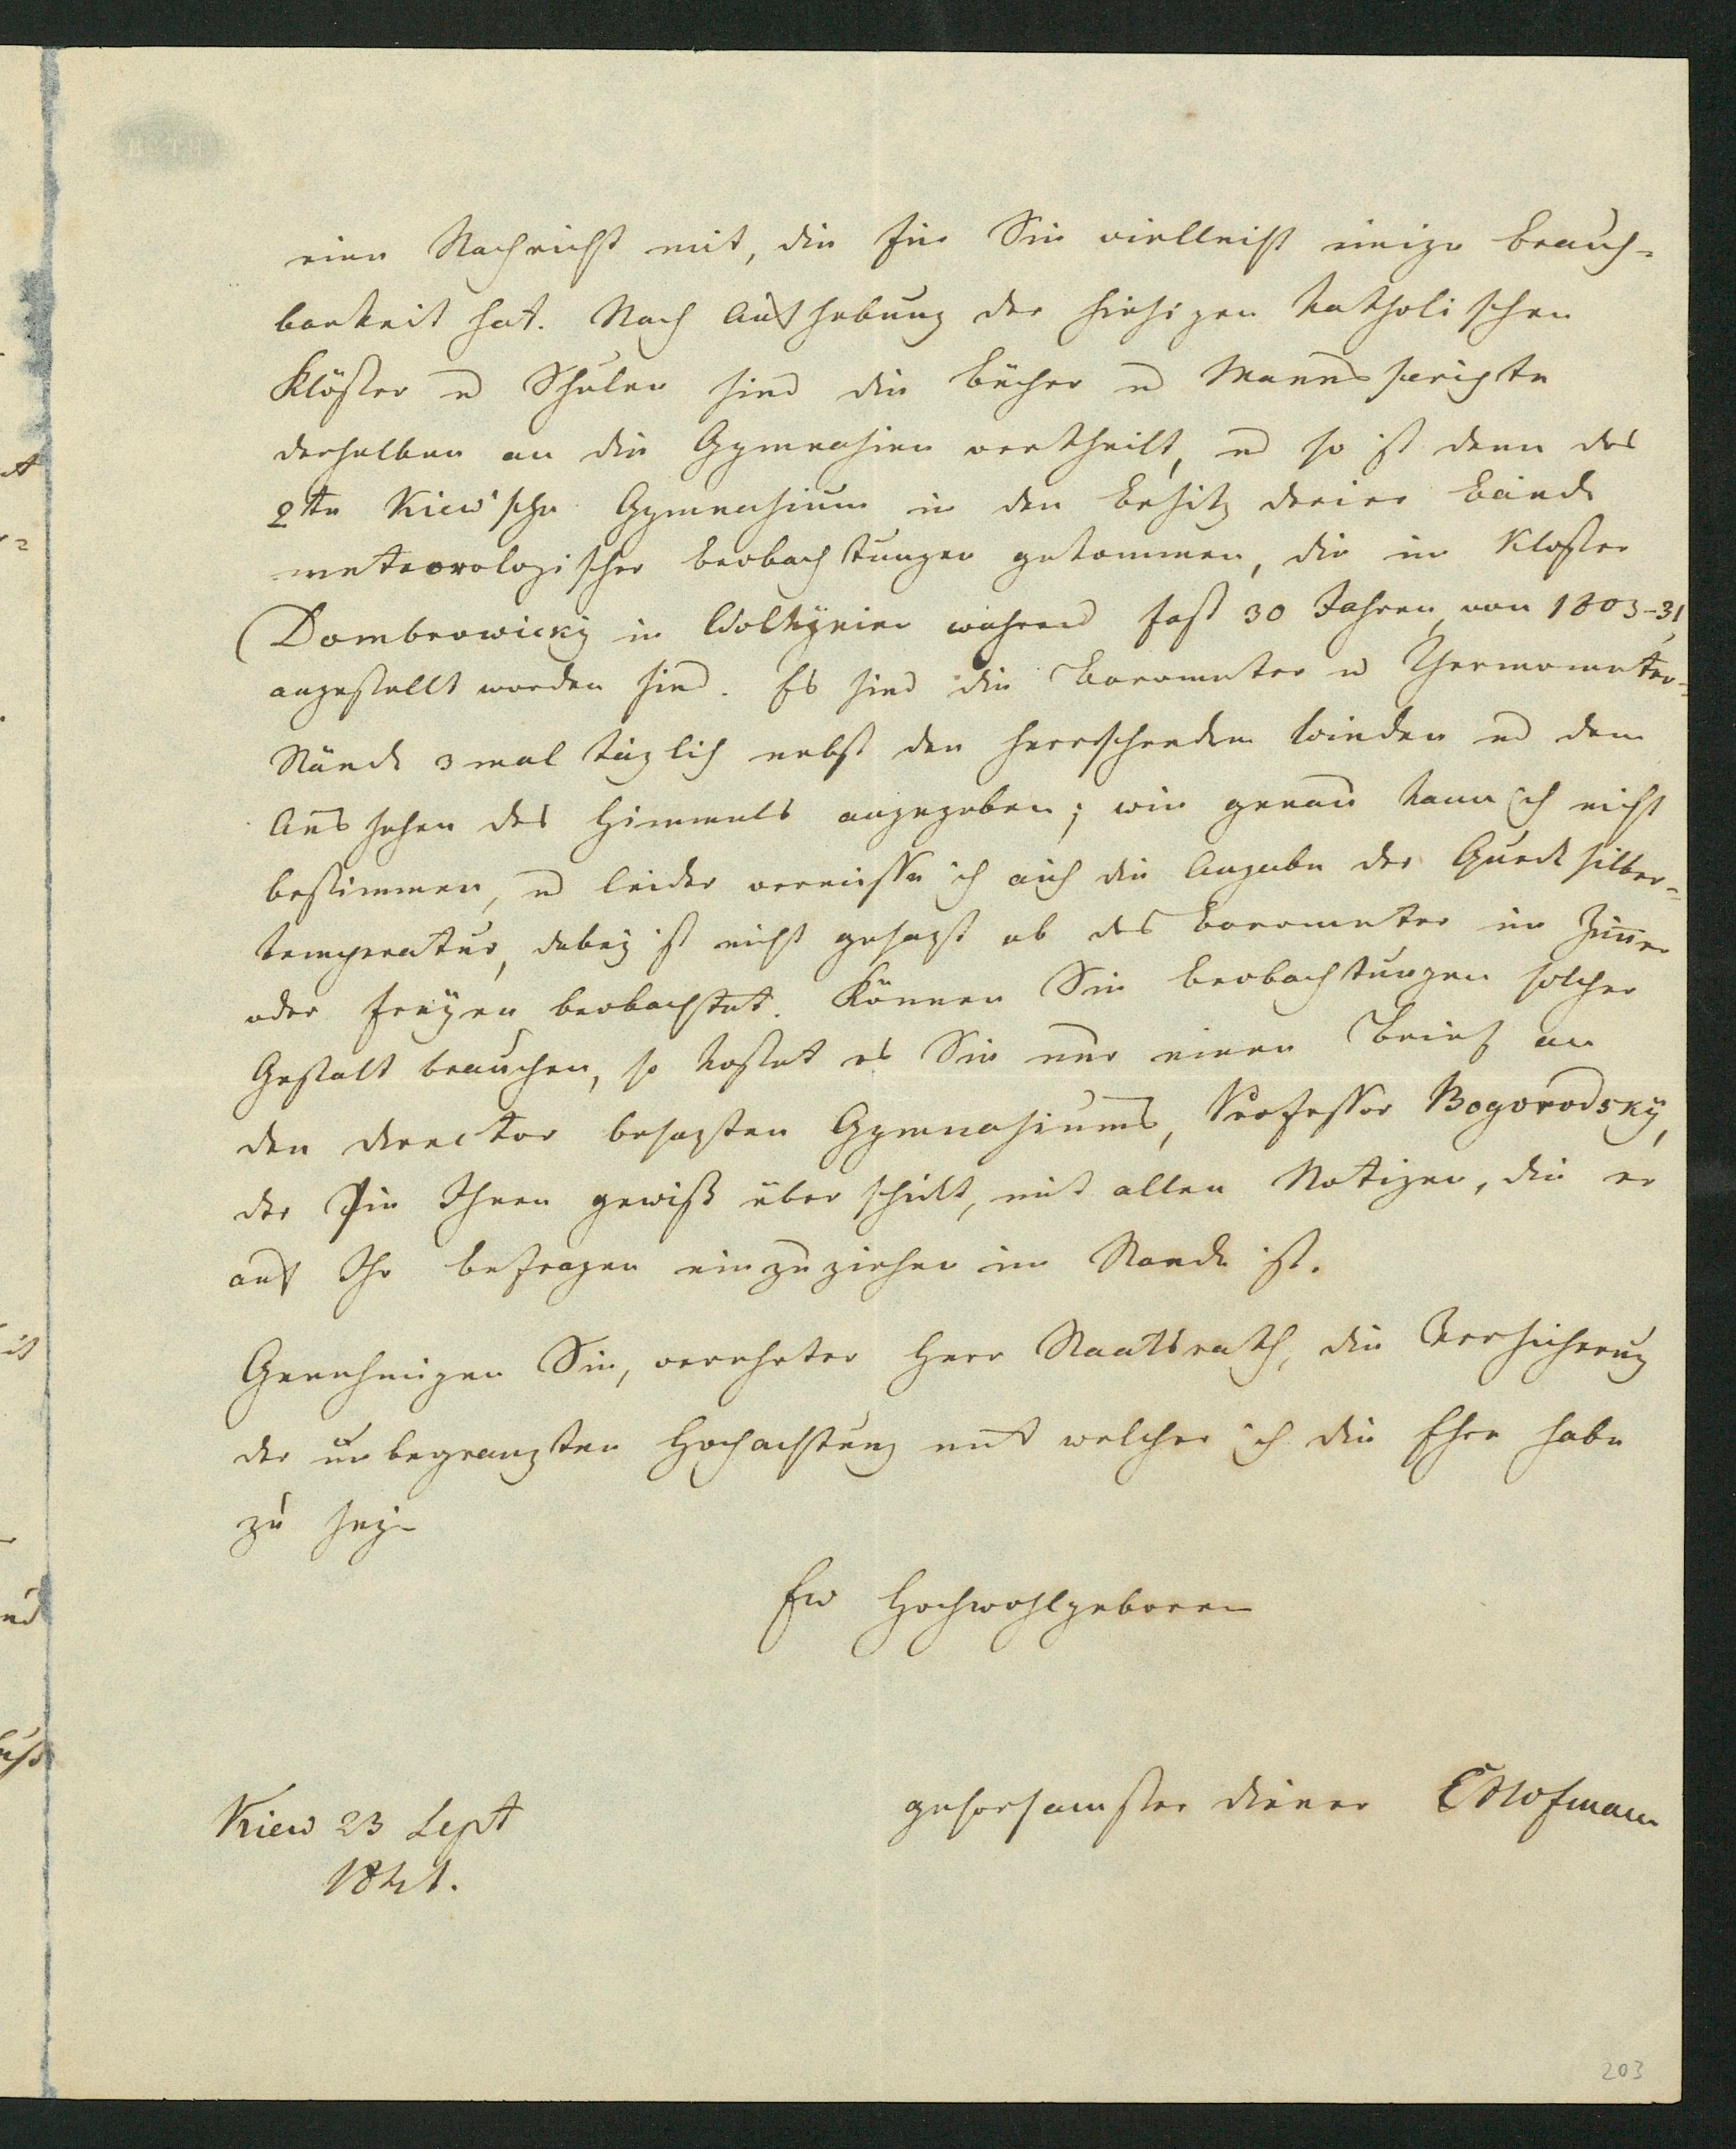 eine Nachricht mit, die für Sie vielleicht einige Brauch-
barkeit hat. Nach Aufhebung der hiesigen katholischen
Klöster u Schulen sind die Bücher u Manuscripte
derselben an die Gymnasien vertheilt, u so ist denn das
2te Kiew'sche Gymnasium in den Besitz dreier Bände
meteorologischer Beobachtungen gekommen, die im Kloster
Dombrowicky in Wolhynien während fast 30 Jahren, von 1803-31,
angestellt worden sind. Es sind die Barometer u Thermometer-
Stände 3 mal täglich nebst den herrschenden Winden und dem
Aussehen des Himmels angegeben; wie genau kann ich nicht
bestimmen, u leider vermisse ich auch die Angabe der Quecksilber-
temperatur, dabey ist nicht gesagt ob das Barometer im Zimmer
oder Freyen beobachtet. Können Sie Beobachtungen solcher
Gestalt brauchen, so kostet es Sie nur einen Brief an
den Director besagten Gymnasiums, Professor Bogorodsky,
der sie Ihnen gewiß überschickt, mit allen Notizen, die er
auf Ihr Befragen einzuziehen im Stande ist.
Genehmigen Sie, verehrter Herr Staatsrath, die Versicherung
der unbegränzten Hochachtung mit welcher ich die Ehre habe
zu seyn
Ew Hochwohlgeboren
gehorsamster Diener E Hofmann
Kiew 23 Sept
1841.
203